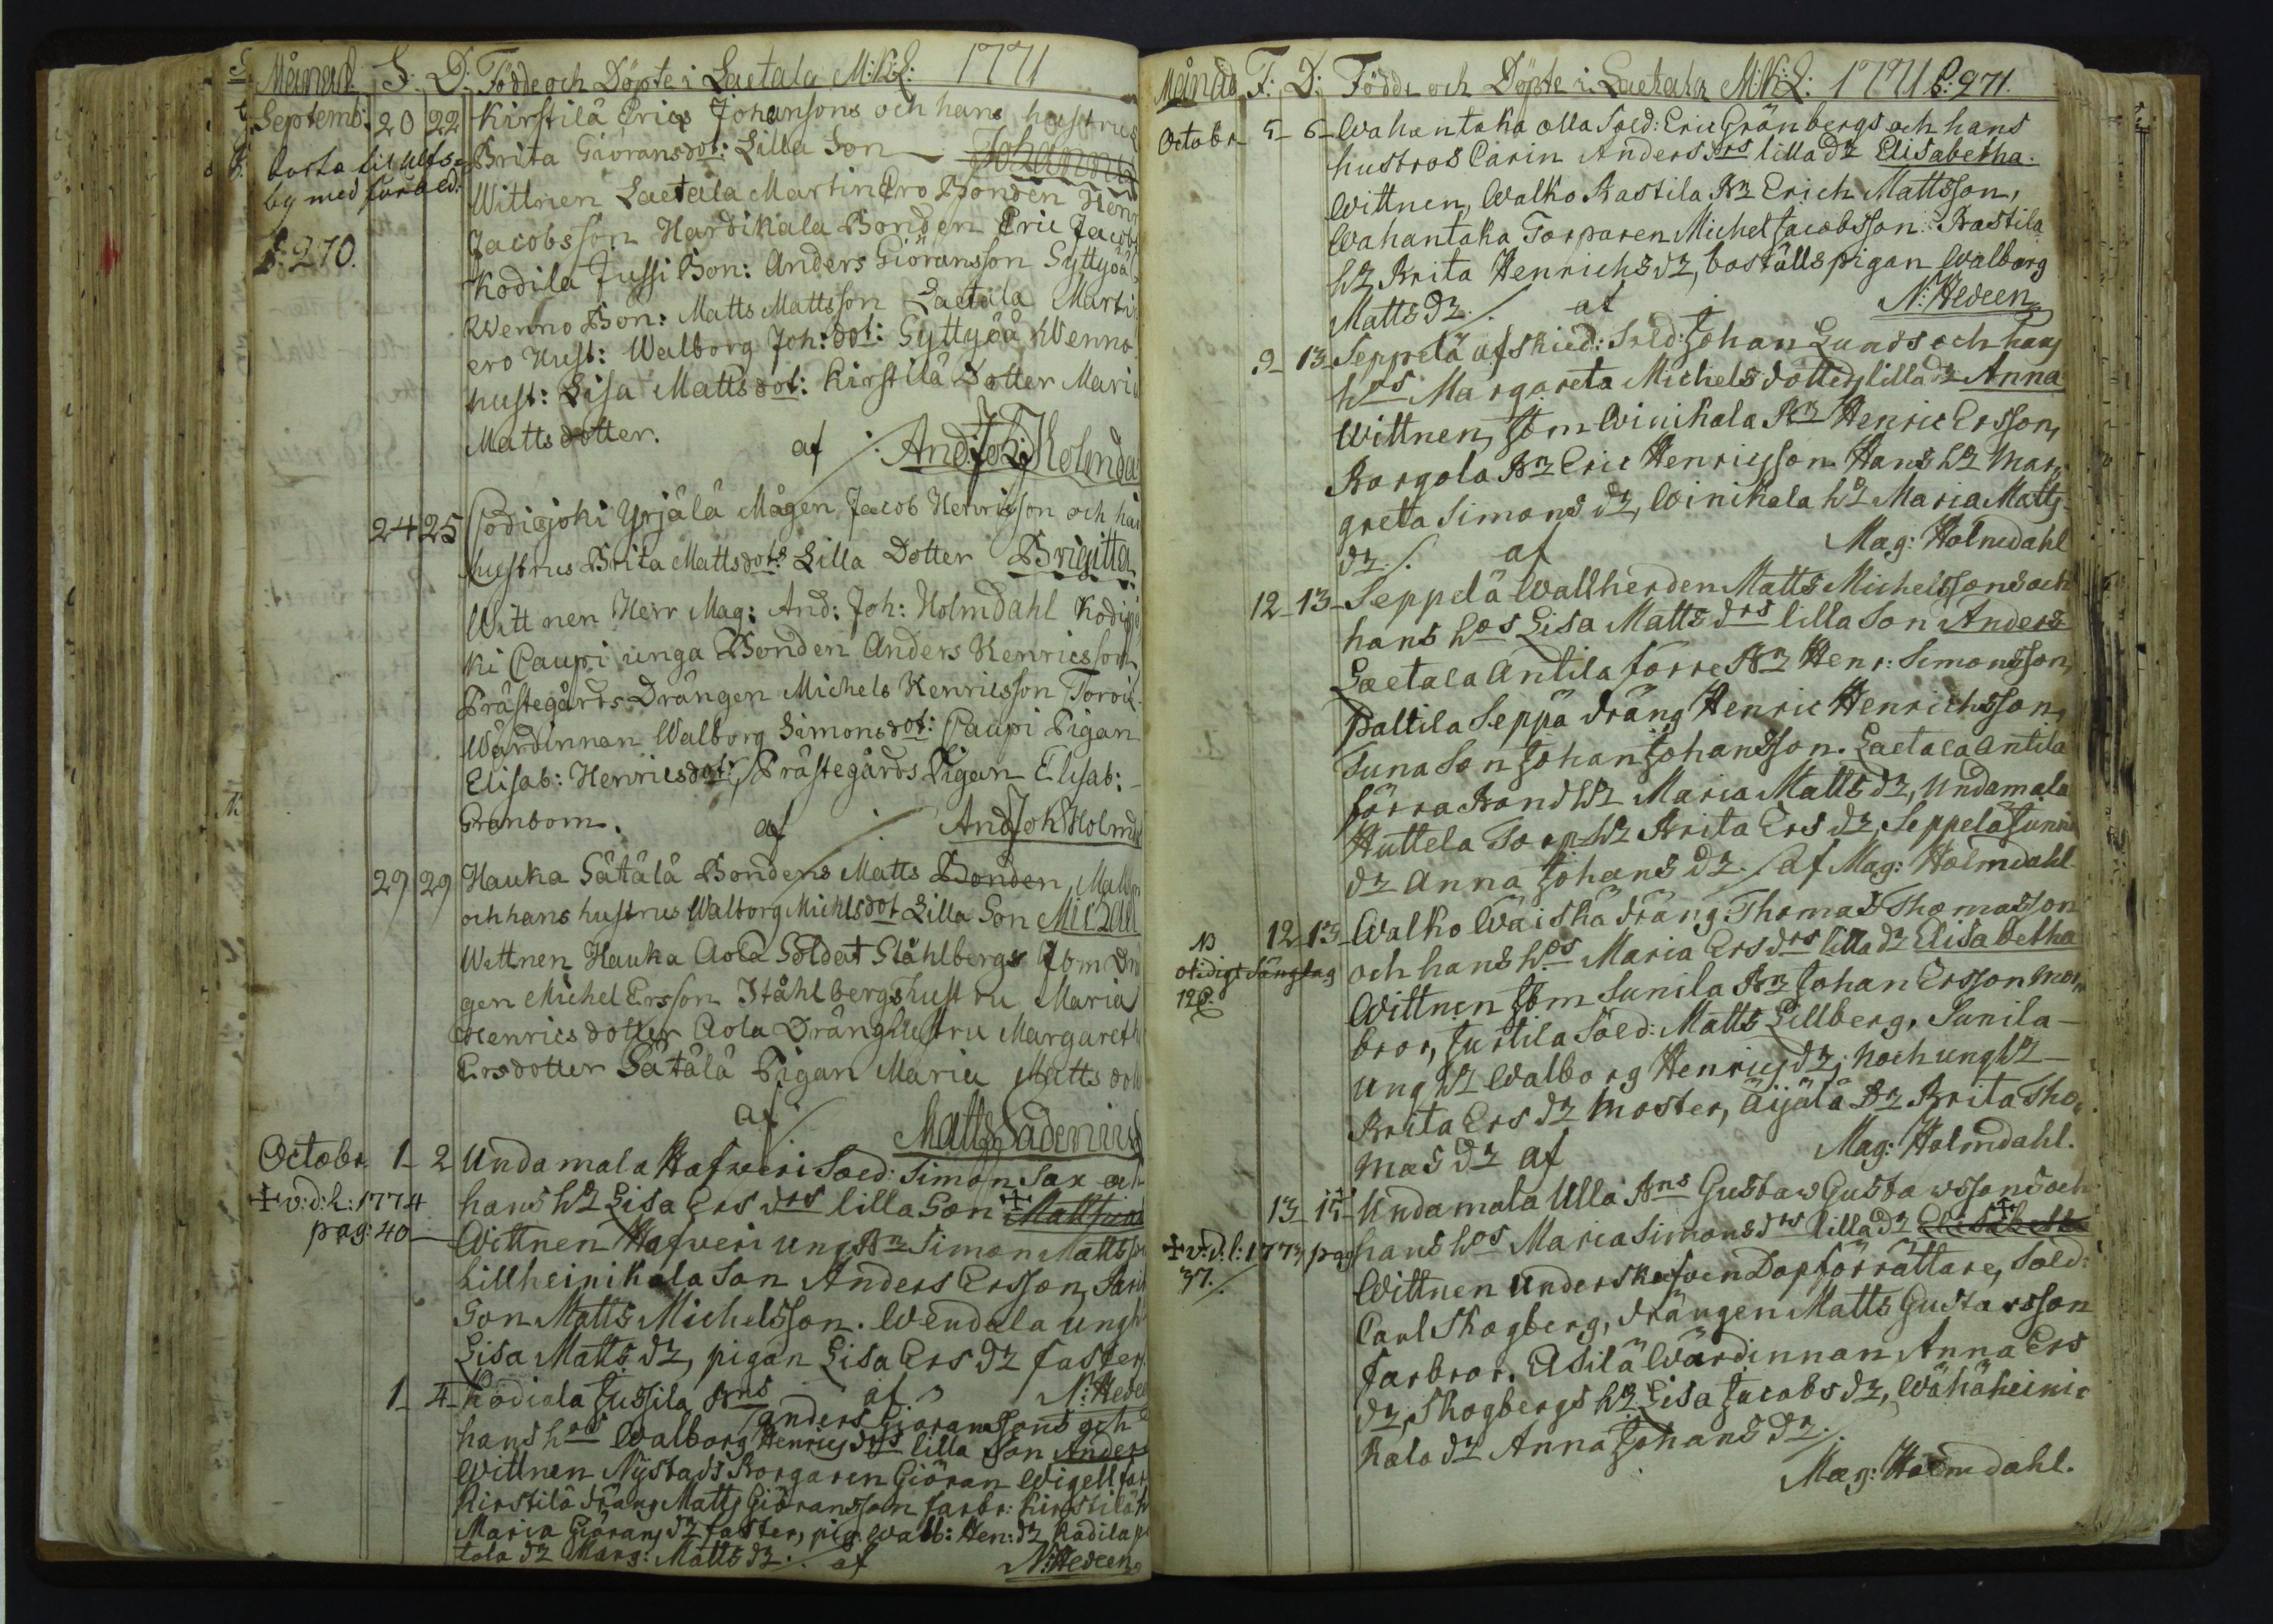 Månad F: D: Födde och Döpte i Laetala M:K:L: 1771
Septemb: 20 22 Kirstilä Erics Johansons och hans hustrus
borta til Ulfs= Brita Giöransdot: Lilla Son Johannes
by med föräld: Wittnen Laetala Martin Ero Bonden Henr
Jacobsson Hardikala Bonden Eric Jacobs
S: 270. Kodila Jussi Bon: Anders Giöransson Syttyöä
Kwenno Bon: Matts Mattsson Laetala Marti
ero Hust: Walborg Joh: dot: Syttyöä Kwenno
hust: Lisa Mattsdot: Kirstilä Dotter Mari
Mattsdotter. af And: Joh: Holmda
24 25 Codicjoki Yrjälä Mågen Jacob Henricsson och han
hustrus Brita Mattsdots Lilla Dotter Brigitta
Wittnen Herr Mag: And: Joh: Holmdahl Kodisjo
ki Caupi unga Bonden Anders Henricsson
Prästegårds Drängen Michels Henricsson
Wärdinnan Walborg Simonsdot: Caupi Pigan
Elisab: Henricsdot: Prästegårds Pigan Elisab:
Granbom. af And Joh Holmd
29 29 Hauka Sätälä Bondens Matts Bonden
och hans hustrus Walborg Michlsdot Lilla Son Michael
Wittnen Hauka Aola Soldat Ståhlbergs Jbm Drä
gen Michel Ersson Ståhlbergs hustru Maria
Henricsdotter Aola Dränghustru Margareth
Ersdotter Sätälä Pigan Maria Matts dott
af Matts Sadenius
Octobr. 1 2 Undamala Hafweri Sold: Simon Sax och
+ v:d:l: 1774 hans hz Lisa Ers drs lilla Son + Matthias
pag: 40 Wittnen Hafveri ung Bn Simon Mattss
Lillheinikala Son Anders Ersson,
Son Matts Michelsson. Wendela ung h
Lisa Matts dz, pigan Lisa Ers dz faster.
af N: Hedee
1 4 Kodiala Jussila Bns Anders Giöranssons och
hans hos Walborg Henrics drs lilla Son Anders
Wittnen Nystads Borgaren Giöran Wigell far
Kirstilä dräng Matts Giöransson farbr: Kirstilä h
Maria Giörans dz faster, pig: Walb: Hen: dz Kadila pi
tola dz Marg: Matts dz. af N: Hedeen
Månad F: D: Födde och Döpte i Laetala M:K:L: 1771 S: 271.
Octobr 5 6 Wahantaka olla Sold: Eric Grönbergs och hans
hustros Carin Anders drs lilla dz Elisabetha.
Wittnen, Walko Rastila Bn Erich Mattsson,
Wahantaka Torparen Michel Jacobsson. Rastila
hz Brita Henrichs dz, boställs pigan Walborg
Matts dz. af N: Hedeen
9 13 Seppelä afskied: Sold: Johan Lunds och hans
hos Margareta Michels dotters lilla dz Anna
Wittnen, Jbm Winikala Bn Henric Ersson,
Korgola Bn Eric Henricsson Hans hz Mar
greta Simons dz, Winikala hz Maria Matts
dz. af Mag: Holmdahl
12 13 Seppelä Wallherden Matts Michelssons och
hans hos Lisa Matts drs lilla Son Anders
Laetala Antila förre Bn Henr: Simonsson,
Paltila Seppä dräng Henric Henrichsson,
Suna Son Johan Johansson. Laetala Antila
förra Bond hz Maria Matts dz, Undamala
Huttela Torp hz Brita Ers dz, Seppelä Junna
dz Anna Johans dz. af Mag: Holmdahl
12 13 Walko Wäiskä dräng Thomas Thomasson
NB
otidigt Sänglag och hans hos Maria Ers drs lilla dz Elisabetha
126. Wittnen Jbm Sunila Bn Johan Ersson mor
bror, Jurtila Sold: Matts Lillberg, Sunila
ung hz Walborg Henrics dz, noch ung hz
Brita Ers dz moster, Äijälä Bz Brita Tho
mas dz af Mag: Holmdahl.
13 15 Undamala Ulla Bns Gustaw Gustawssons och
+ v:d:l: 1773 pag hans hos Maria Simons drs lilla dz + Elisabetha
37. Wittnen underskrefven Dopförrättare, Sold:
Carl Skogberg, drängen Matts Gustavsson
farbror. Asilä Wärdinnan Anna Ers
dz, Skogbergs hz Lisa Jacobs dz, Wähäheini
kala dz Anna Johans dz.
Mag: Holmdahl.